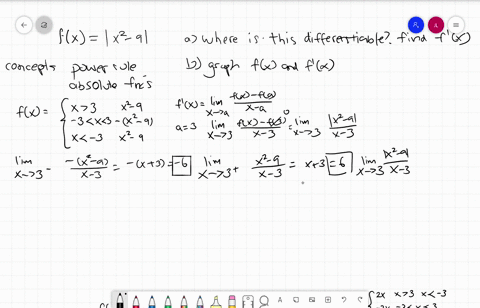 f(x) = |x²-9| a) where is this differentiable? find f'(x)
concepts power rule b) graph f(x) and f'(x)
absolute fnc's
f(x) = { x>3 x²-9
-3<x<3 -(x²-9)
x<-3 x²-9
f'(x) = lim x→a f(x)-f(a) / x-a
a=3 lim x→3 f(x)-f(3) / x-3 = lim x→3 |x²-9| / x-3
0
lim x→3 - -(x²-9) / x-3 = -(x+3) = -6 lim x→3+ x²-9 / x-3 = x+3 = 6 lim x→3 |x²-9| / x-3
{ 2x x>3 x<-3